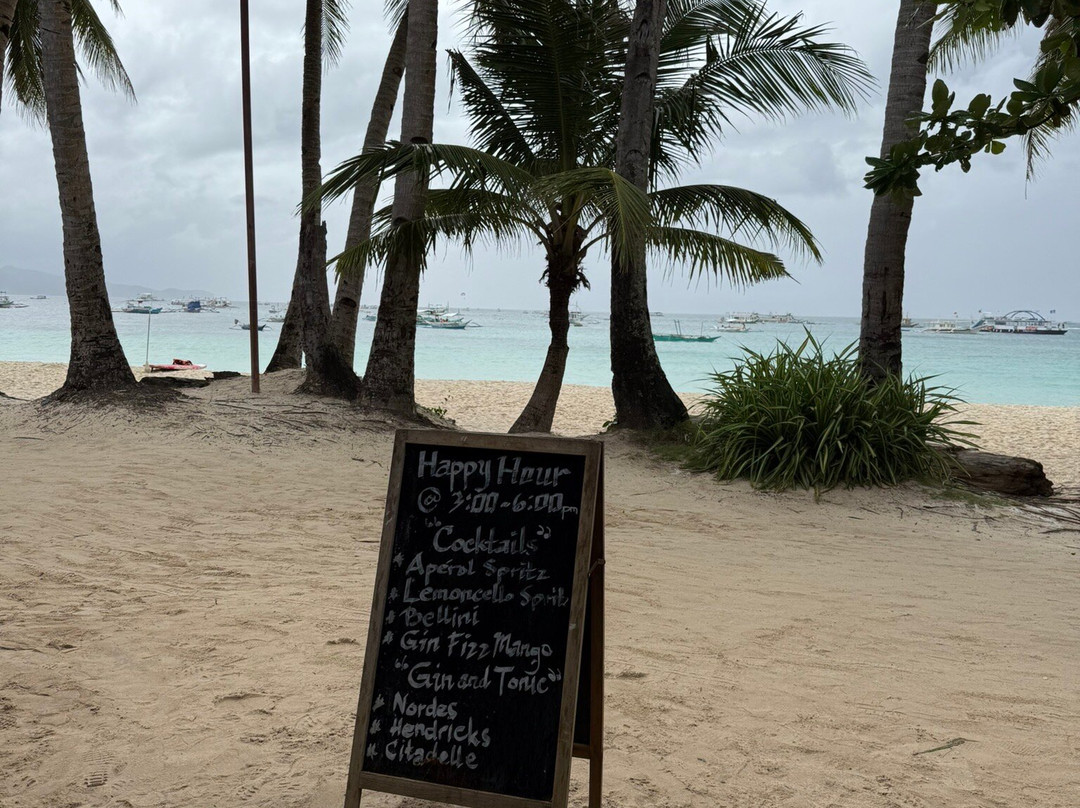 Happy Hour
@ 3:00-6:00pm
"Cocktails"
* Aperol Spritz
* Lemoncello Sprit
* Bellini
* Gin Fizz Mango
"Gin and Tonic"
* Nordes
* Hendricks
* Citadelle